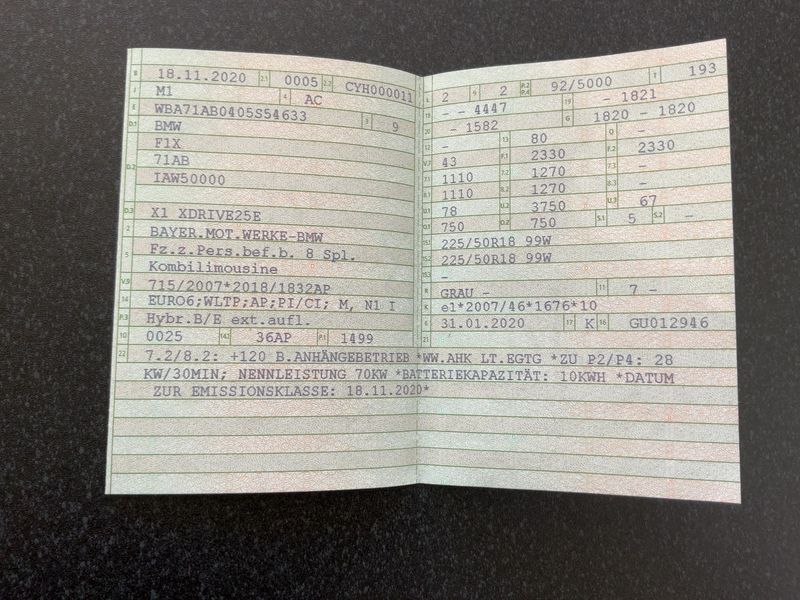 B 18.11.2020 2.1 0005 2.2 CYH000011
J M1 4 AC
E WBA71AB0405S54633 3 9
D.1 BMW
F1X
D.2 71AB
IAW50000
D.3 X1 XDRIVE25E
2 BAYER.MOT.WERKE-BMW
5 Fz.z.Pers.bef.b. 8 Spl.
Kombilimousine
V.9 715/2007*2018/1832AP
14 EURO6;WLTP;AP;PI/CI; M, N1 I
P.3 Hybr.B/E ext.aufl.
10 0025 14.1 36AP P.1 1499
L 2 9 2 P.2 P.4 92/5000 T 193
18 - - 4447 19 - 1821
20 - 1582 G 1820 - 1820
12 - 13 80 Q -
V.7 43 F.1 2330 F.2 2330
7.1 1110 7.2 1270 7.3 -
8.1 1110 8.2 1270 8.3 -
U.1 78 U.2 3750 U.3 67
O.1 750 O.2 750 S.1 5 S.2 -
15.1 225/50R18 99W
15.2 225/50R18 99W
15.3 -
R GRAU - 11 7 -
K e1*2007/46*1676*10
6 31.01.2020 17 K 16 GU012946
21
22 7.2/8.2: +120 B.ANHÄNGEBETRIEB *WW.AHK LT.EGTG *ZU P2/P4: 28
KW/30MIN; NENNLEISTUNG 70KW *BATTERIEKAPAZITÄT: 10KWH *DATUM
ZUR EMISSIONSKLASSE: 18.11.2020*